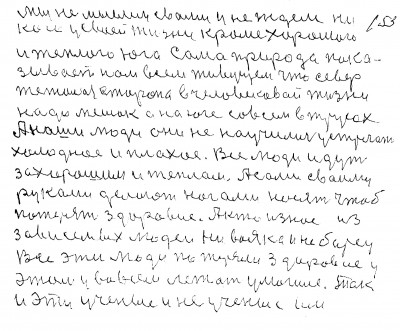 мы не мыслим сами и не ждем ни 153
кого у своей жизни кроме хорошого
и теплого юга Сама природа пока-
зывает нам всем живущем что север
тежолая сторона в человековай жизни
надо мешок а на юге совсем в трусах.
А наши люди они не научилис устречат
холодное и плахое. Все люди идут
за хорошим и теплам. А сами своими
руками делают ногами носят чтоб
потерят здаровие. А кто изнас из
зависемых людей ни вояка и не барец
Все эти люди потеряли здаровие у
этом у во всем лежат у могиле. Так
и эти ученые и не ученые им